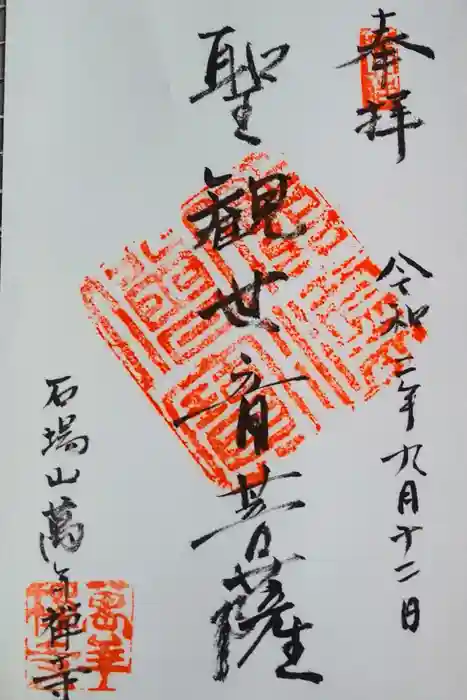 奉拝
令和二年九月十二日
聖観世音菩薩
石場山萬年禅寺